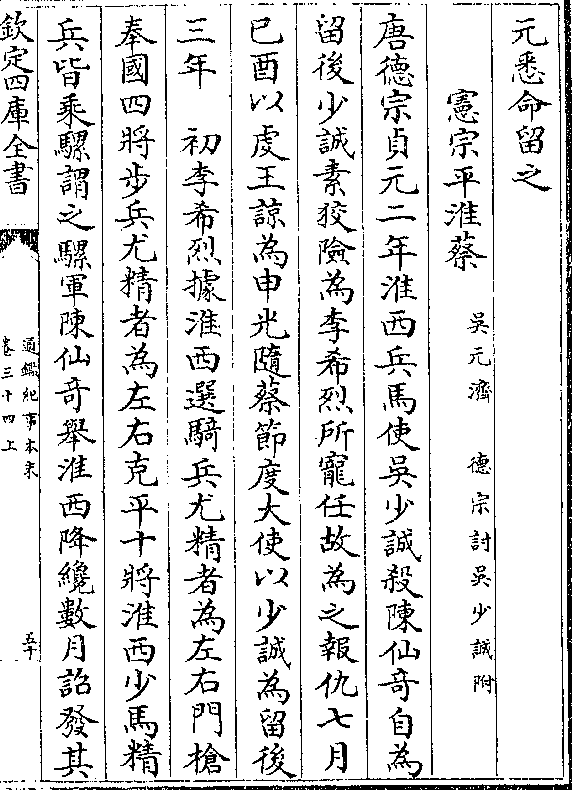 元悉命留之
憲宗平淮蔡 吳元濟 德宗討吳少誠附
唐德宗貞元二年淮西兵馬使吳少誠殺陳仙竒自為
留後少誠素狡險為李希烈所寵任故為之報仇七月
己酉以虔王諒為申光隨蔡節度大使以少誠為留後
三年 初李希烈據淮西選騎兵尤精者為左右門槍
奉國四將步兵尤精者為左右克平十將淮西少馬精
兵皆乘騾謂之騾軍陳仙竒舉淮西降纔數月詔發其
欽定四庫全書
通鑑紀事本末
卷三十四上
五十